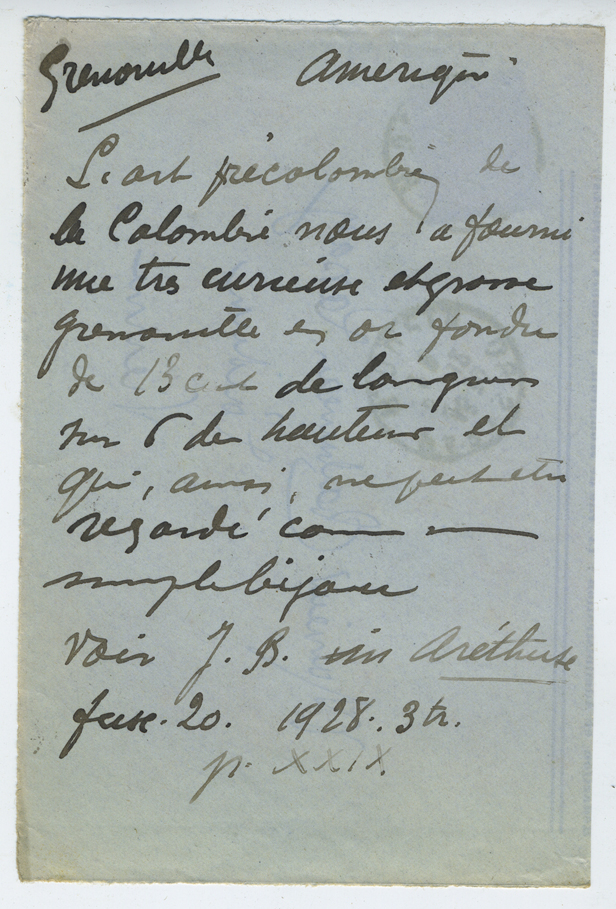 Grenouille Amérique
L'art précolombien de
la Colombie nous a fourni
une très curieuse et grosse
grenouille en or fondu
de 13 cent de longueur
sur 6 de hauteur et
qui, ainsi, ne peut être
regardé comme un
simple bijou
voir J. B. in Aréthuse
fasc. 20. 1928. 3 tr.
p. XXIX.